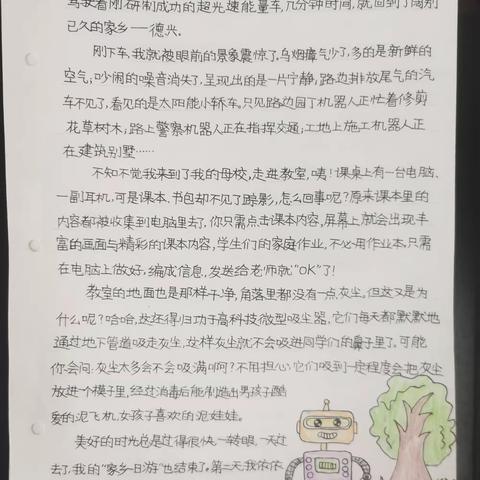 驾驶着刚研制成功的超光速能量车,几分钟时间,就回到了阔别
已久的家乡——德兴。
刚下车,我就被眼前的景象震惊了。乌烟瘴气少了,多的是新鲜的
空气;吵闹的噪音消失了,呈现出的是一片宁静,路边排放尾气的汽
车不见了,看见的是太阳能小轿车,只见路边园丁机器人正忙着修剪
花草树木,路上警察机器人正在指挥交通,工地上施工机器人正
在建筑别墅……
不知不觉我来到了我的母校,走进教室,咦!课桌上有一台电脑、
一副耳机,可是课本、书包却不见了踪影,怎么回事呢?原来课本里的
内容都被收集到电脑里去了,你只需点击课本内容,屏幕上就会出现丰
富的画面与精彩的课本内容,学生们的家庭作业,不必用作业本,只需
在电脑上做好,编成信息,发送给老师就"OK"了!
教室的地面也是那样干净,角落里都没有一点灰尘。但这又是为
什么呢?哈哈,这还得归功于高科技微型吸尘器,它们每天都默默地
通过地下管道吸走灰尘,这样灰尘就不会吸进同学们的鼻子里了。可能
你会问:灰尘太多会不会吸满啊?不用担心,它们吸到一定程度会把灰尘
放进一个模子里,经过消毒后能制造出男孩子酷
爱的泥飞机,女孩子喜欢的泥娃娃。
美好的时光总是过得很快,一转眼,一天过
去了,我的"家乡一日游"也结束了。第二天,我依依